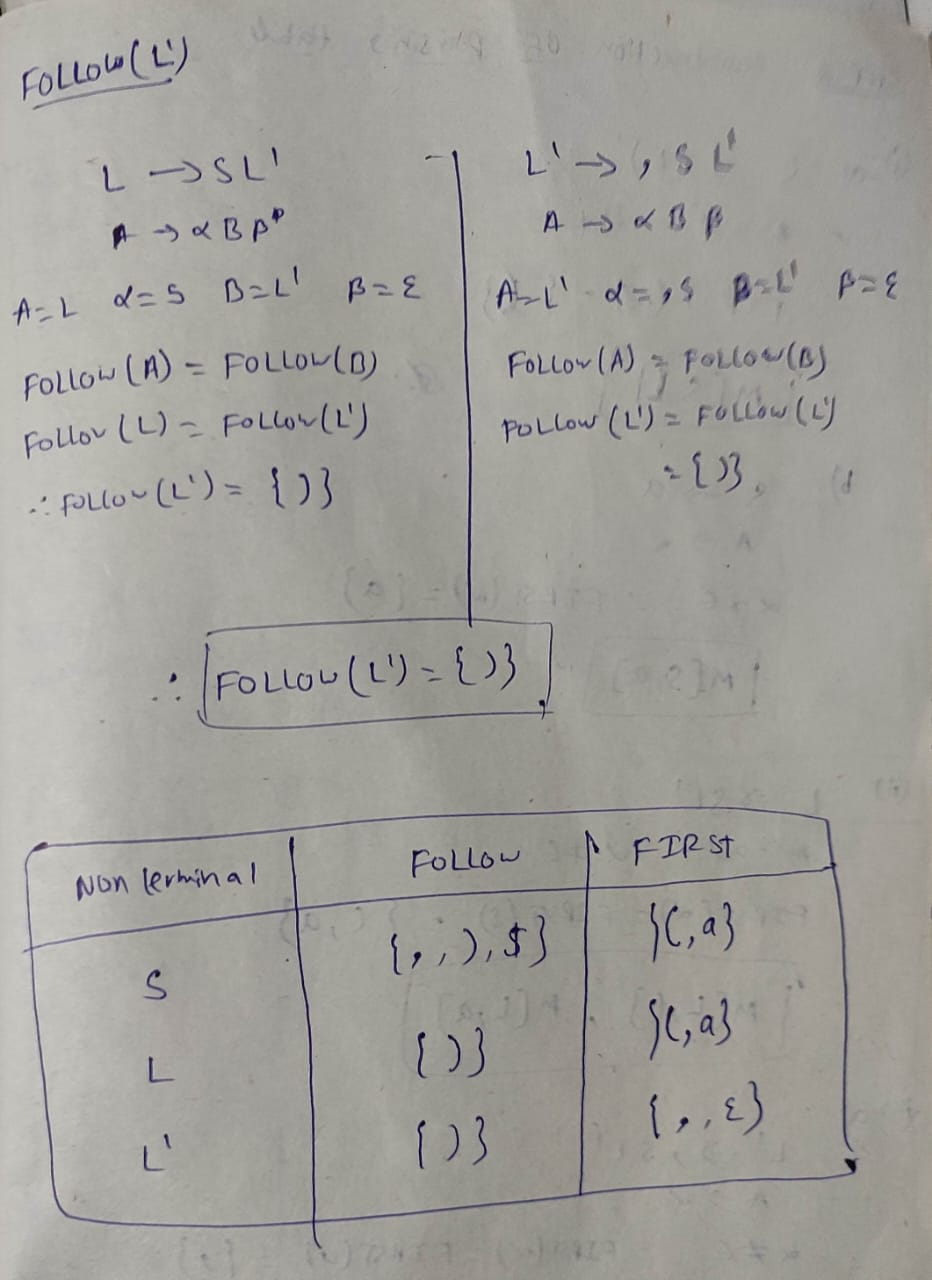 FOLLOW(L')
L → S L'
A → α B β
A = L α = S B = L' β = ε
FOLLOW(A) = FOLLOW(B)
FOLLOW(L) = FOLLOW(L')
∴ FOLLOW(L') = { ) }
L' → , S L'
A → α B β
A = L' α = , S B = L' β = ε
FOLLOW(A) = FOLLOW(B)
FOLLOW(L') = FOLLOW(L')
= { ) }
∴ FOLLOW(L') = { ) }
Non terminal FOLLOW FIRST
S { , , ) , $ } { ( , a }
L { ) } { ( , a }
L' { ) } { , , ε }